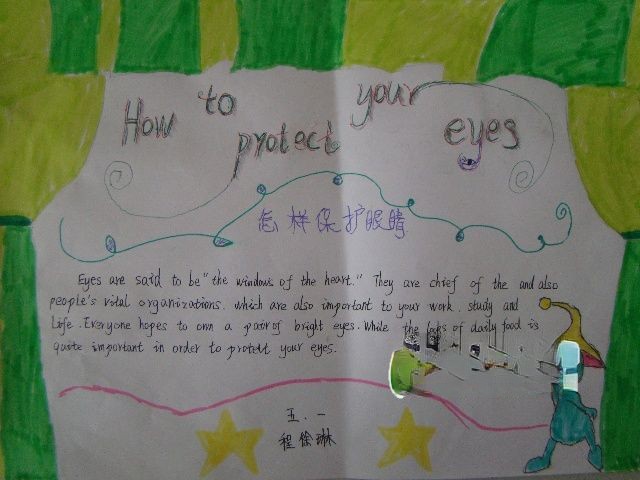 How to protect your eyes
怎样保护眼睛
Eyes are said to be "the windows of the heart." They are chief of the and also
people's vital organizations. which are also important to your work. study and
Life. Everyone hopes to own a pair of bright eyes. While the of daily food is
quite important in order to protect your eyes.
五.一
程徐琳